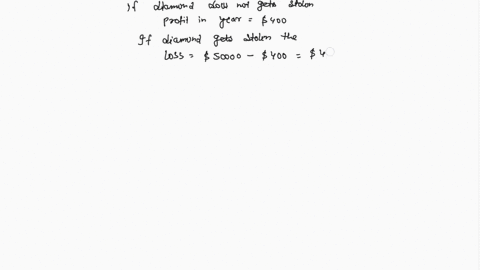 If diamond does not gets stolen
profit in year = $400
If diamond gets stolen the
loss = $50000 - $400 = $4